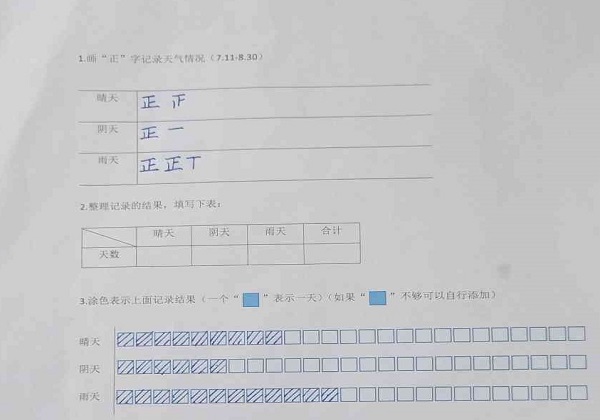 1.画“正”字记录天气情况（7.11-8.30）
晴天 正 正
阴天 正 一
雨天 正 正 丅
2.整理记录的结果，填写下表：
晴天 阴天 雨天 合计
天数
3.涂色表示上面记录结果（一个“ ”表示一天）（如果“ ”不够可以自行添加）
晴天
阴天
雨天